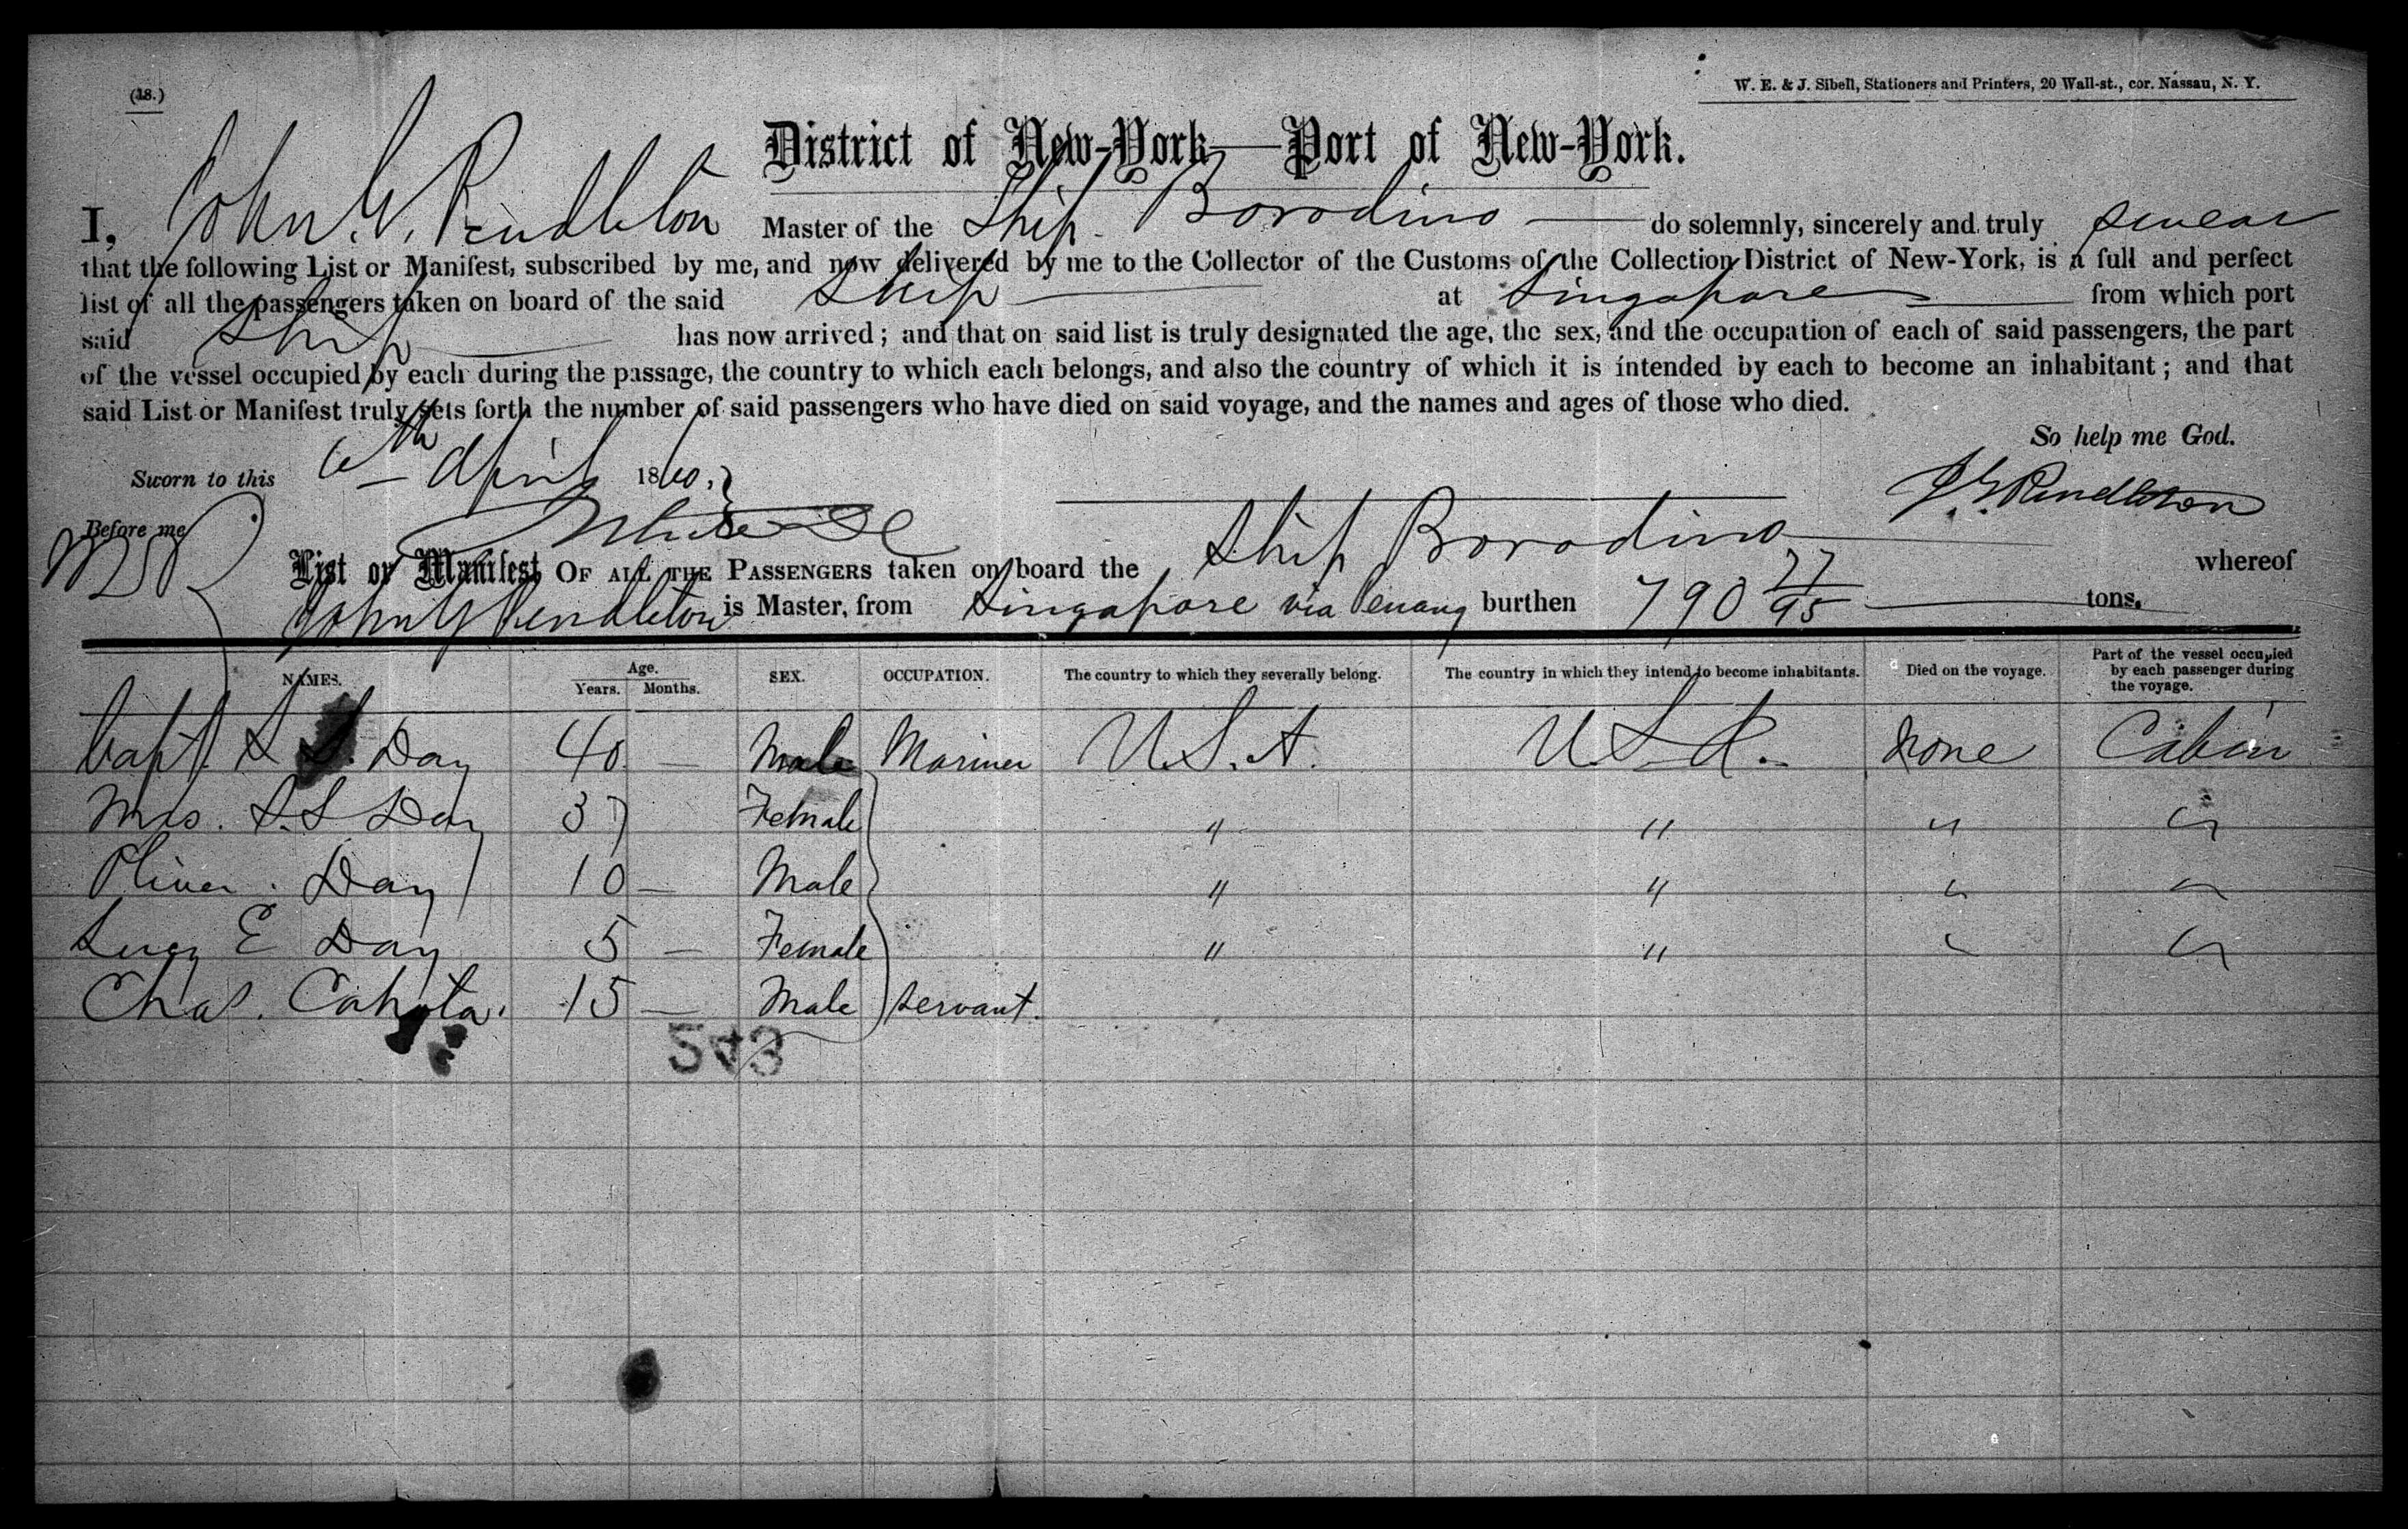 (18.)
W. E. & J. Sibell, Stationers and Printers, 20 Wall-st., cor. Nassau, N. Y.
District of New-York—Port of New-York.
I, John G. Pendleton Master of the Ship Borodino do solemnly, sincerely and truly swear
that the following List or Manifest, subscribed by me, and now delivered by me to the Collector of the Customs of the Collection District of New-York, is a full and perfect
list of all the passengers taken on board of the said Ship at Singapore from which port
said Ship has now arrived; and that on said list is truly designated the age, the sex, and the occupation of each of said passengers, the part
of the vessel occupied by each during the passage, the country to which each belongs, and also the country of which it is intended by each to become an inhabitant; and that
said List or Manifest truly sets forth the number of said passengers who have died on said voyage, and the names and ages of those who died.
So help me God.
Sworn to this 6th April 1860.
J. G. Pendleton
Before me
List or Manifest OF ALL THE PASSENGERS taken on board the Ship Borodino whereof
John G Pendleton is Master, from Singapore via Penang burthen 790 77/95 tons.
NAMES. Age. Years. Months. SEX. OCCUPATION. The country to which they severally belong. The country in which they intend to become inhabitants. Died on the voyage. Part of the vessel occupied by each passenger during the voyage.
Capt. S S. Day 40 — Male Mariner U.S.A. U.S.A. None Cabin
Mrs. S. S Day 37 Female " " " "
Oliver Day 10 — Male " " " "
Lucy E Day 5 — Female " " " "
Chas. Cahota. 15 — Male servant.
543